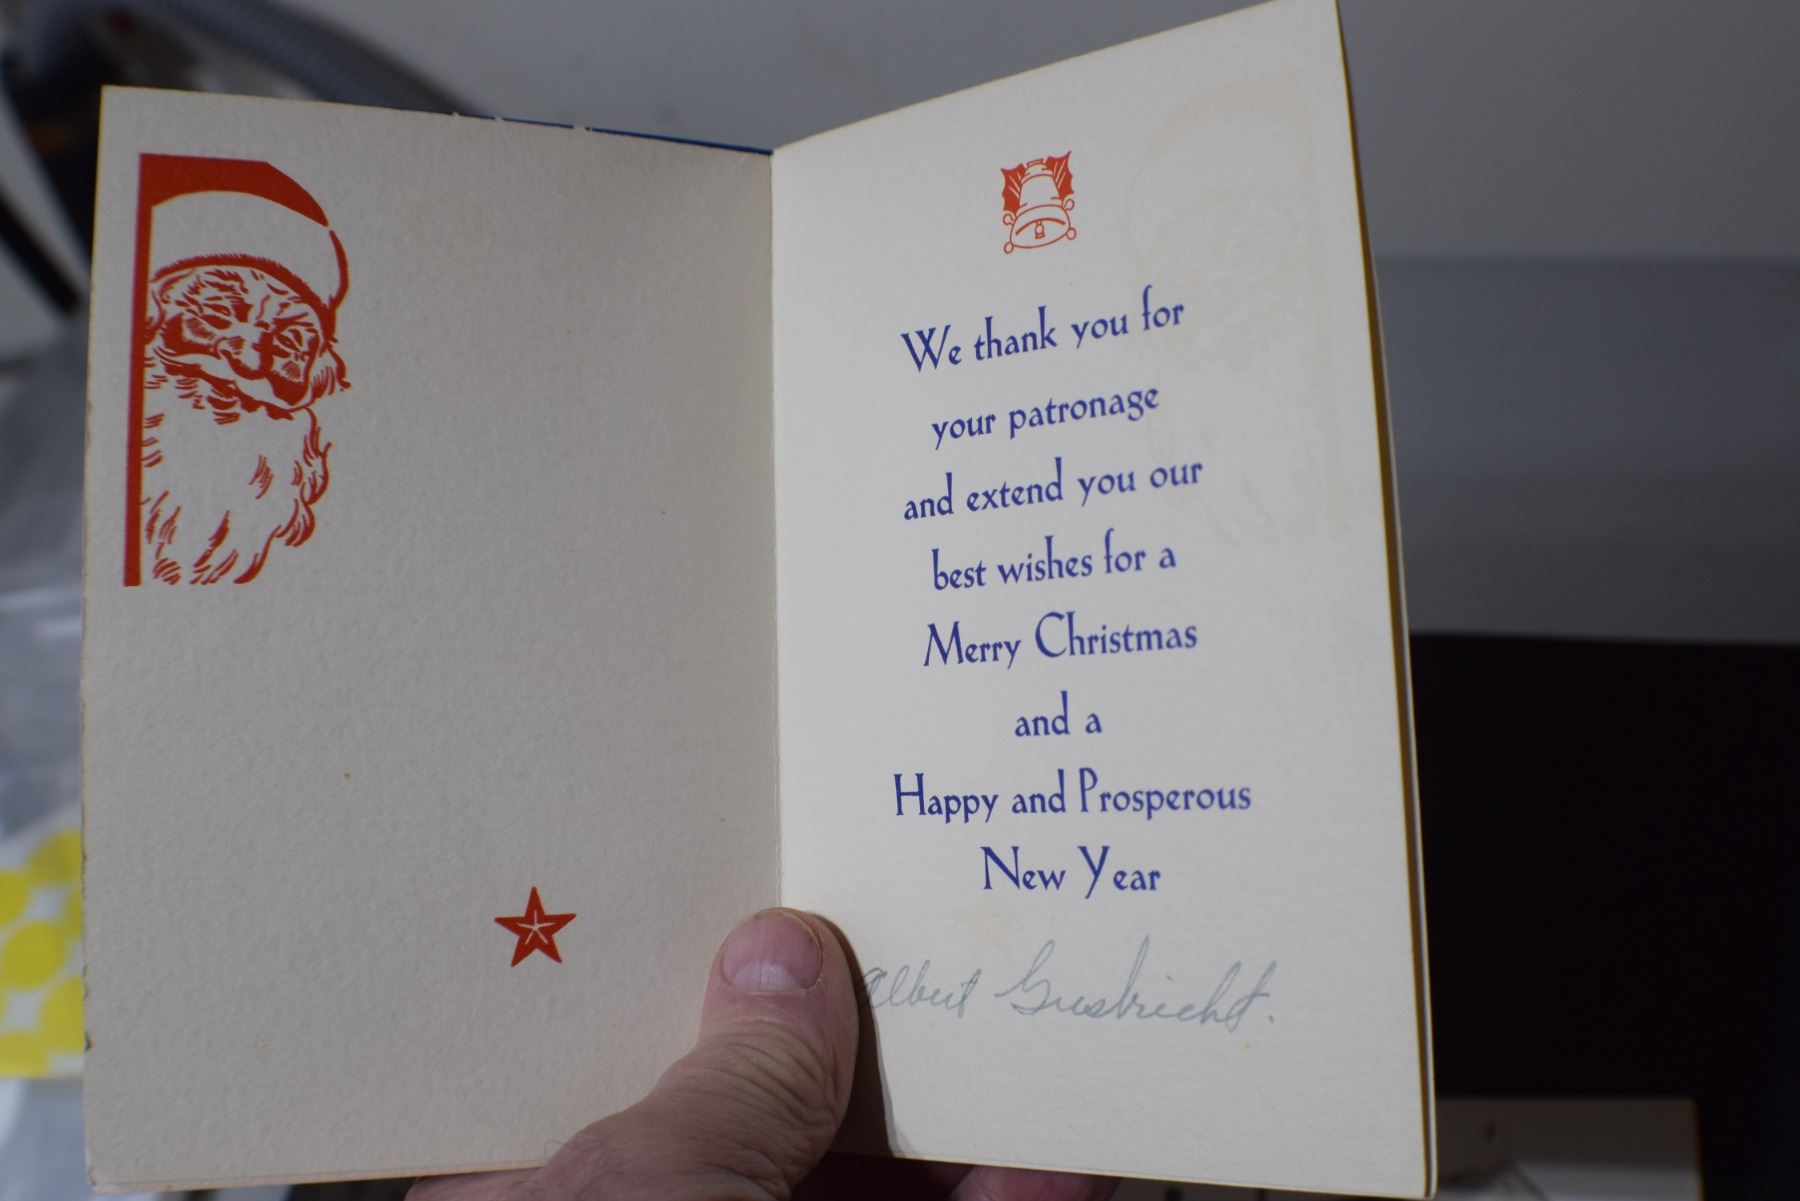 We thank you for
your patronage
and extend you our
best wishes for a
Merry Christmas
and a
Happy and Prosperous
New Year
Albert